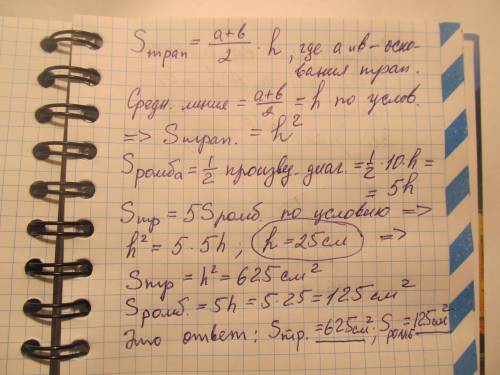 Sтрап = a+b/2 · h, где a и в - осно-
вания трап.
Средн. линия = a+b/2 = h по услов.
=> Sтрап. = h²
Sромба = 1/2 произвед. диаг. = 1/2 · 10 · h =
= 5h
Sтр = 5Sромб. по условию =>
h² = 5 · 5h ; h = 25см =>
Sтр = h² = 625 см²
Sромб. = 5h = 5 · 25 = 125 см²
Это ответ: Sтр. = 625см²; Sромб = 125см²